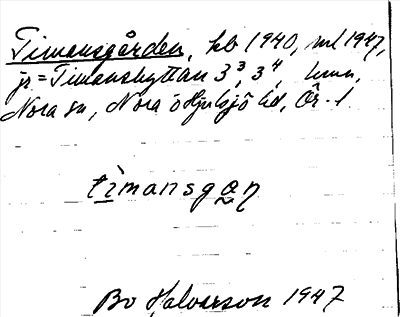 Timansgården, kb 1940, ml 1947,
js = Timanshyttan 3³, 3⁴, hmn,
Nora sn, Nora o Hjulsjö hd, Ör. l.
tìmansga̰ṇ
Bo Halvarson 1947